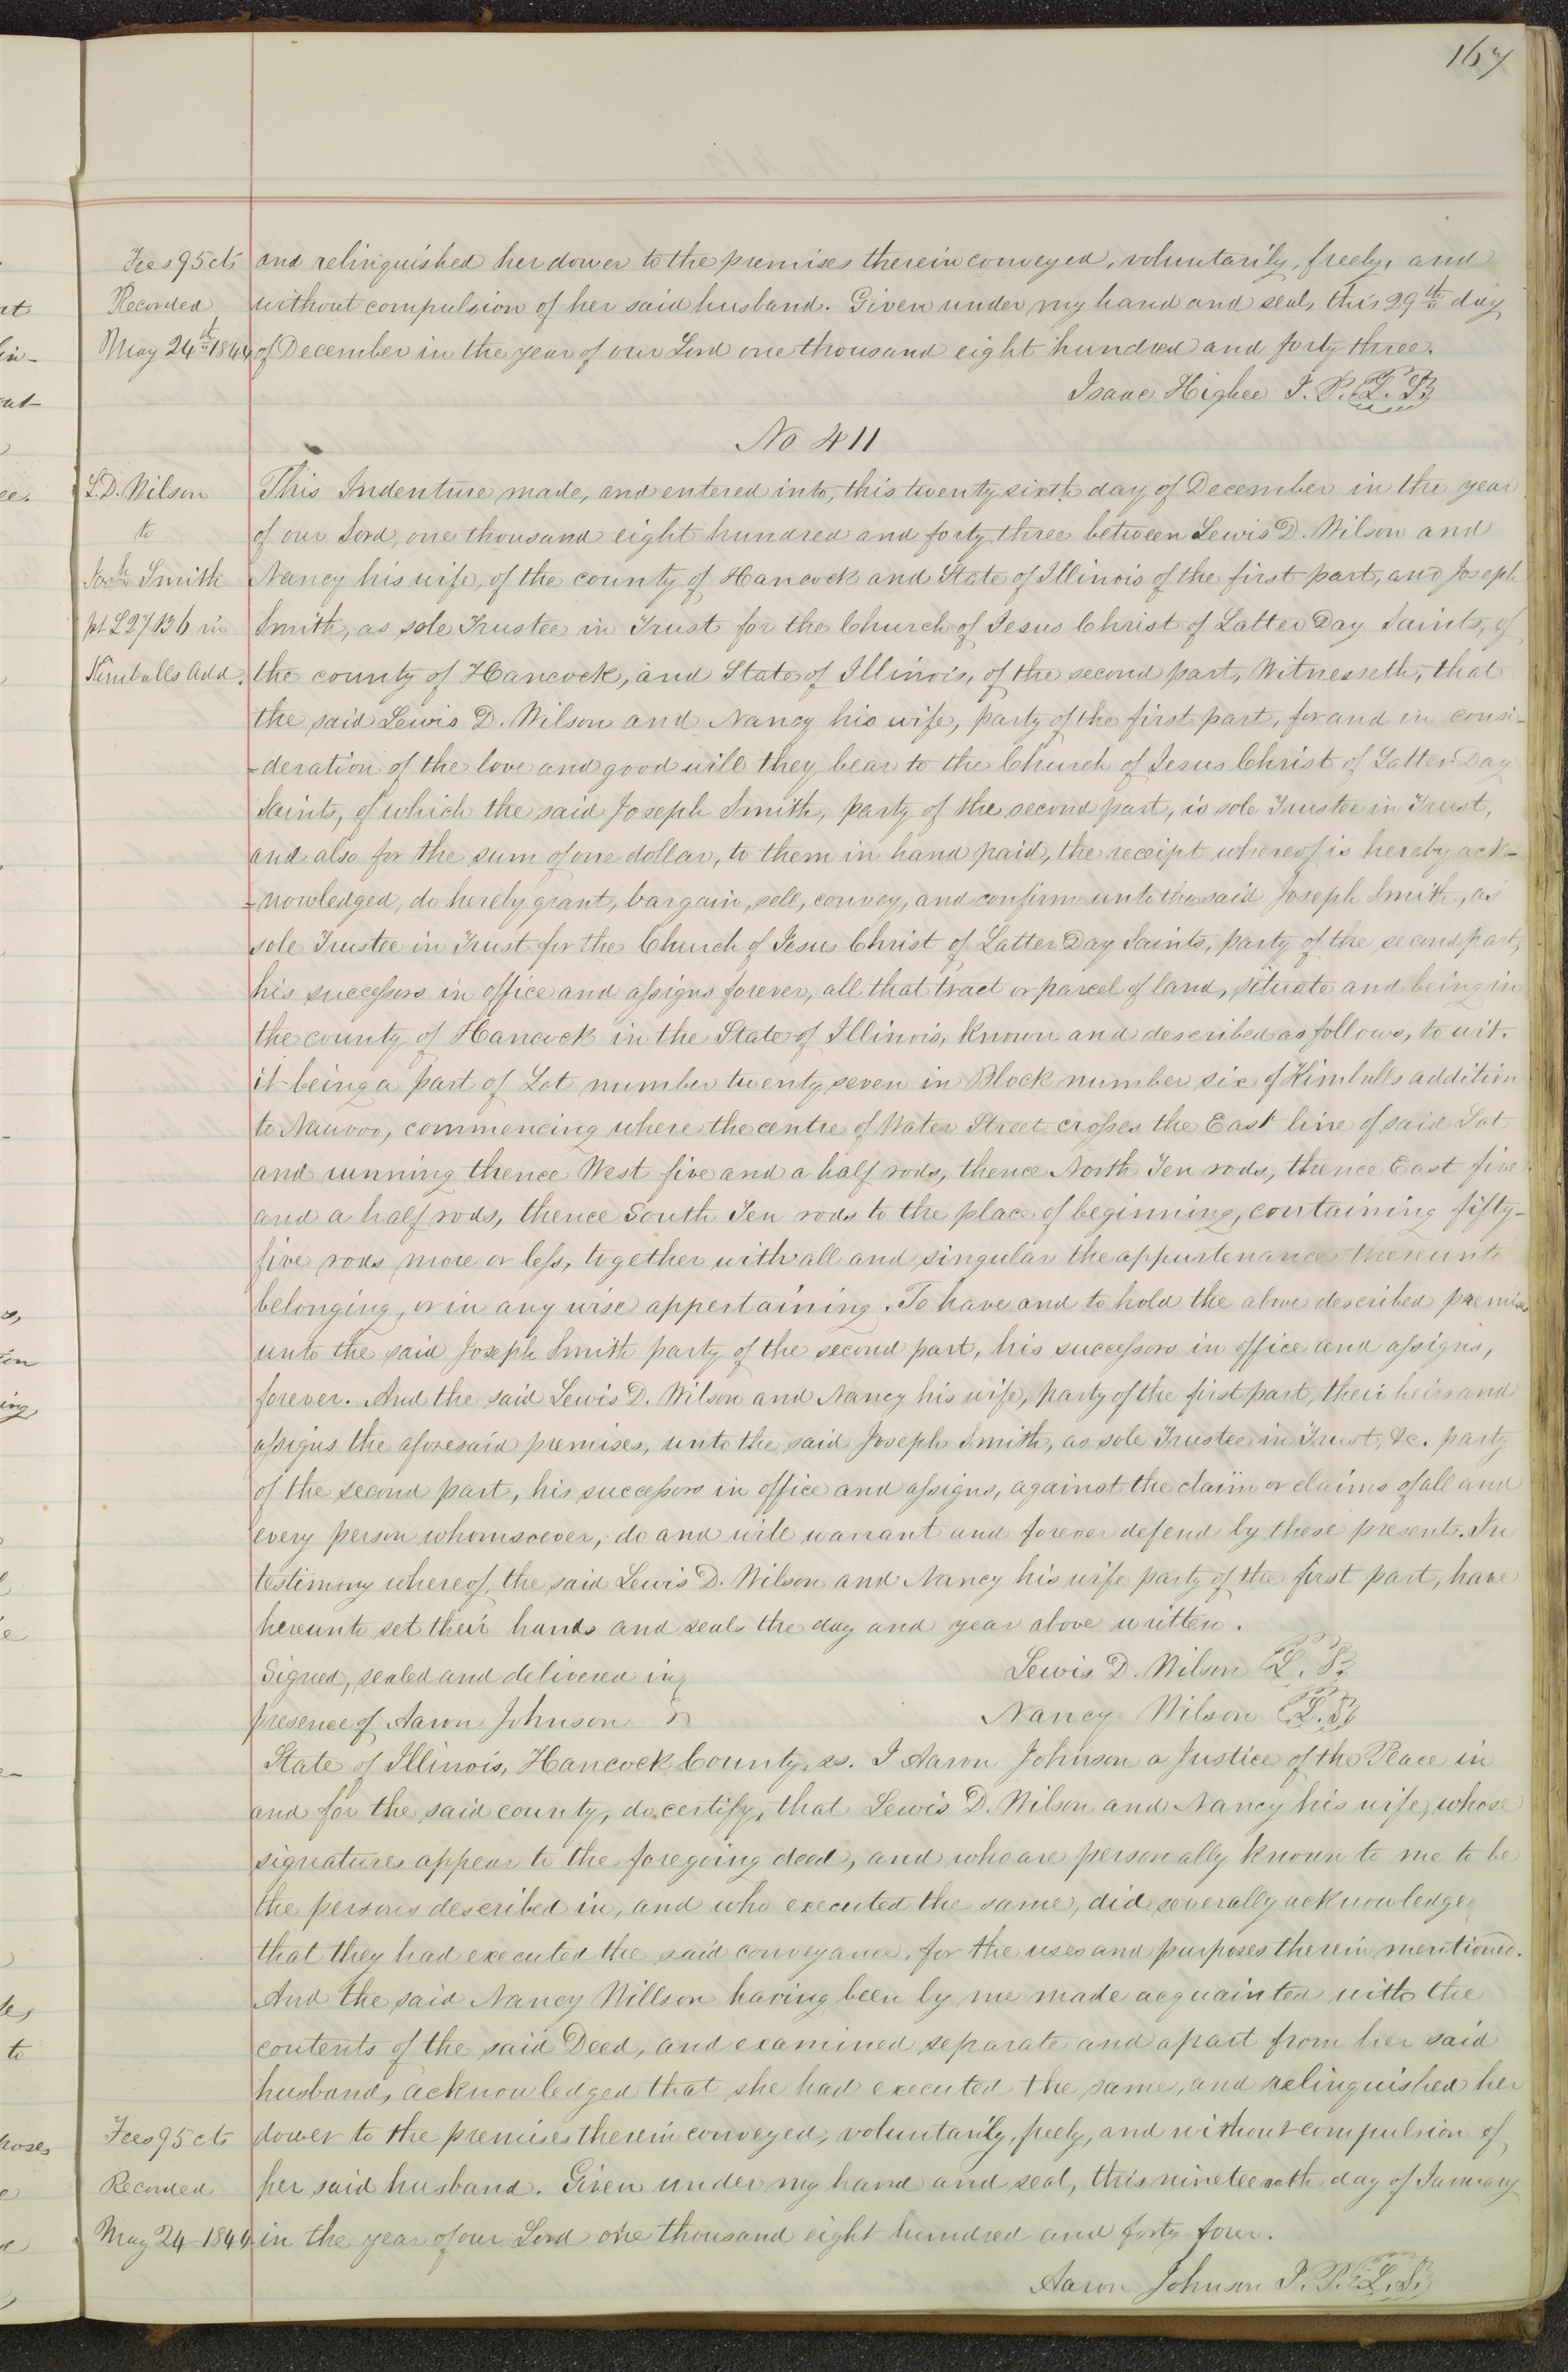 167
Fees 95 cts and relinquished her dower to the premises therein conveyed, voluntarily, freely, and
Recorded without compulsion of her said husband. Given under my hand and seal, this 29th day
May 24th 1844 of December in the year of our Lord one thousand eight hundred and forty three.
Isaac Higbee J. P. L. S.
No 411
L. D. Wilson This Indenture made, and entered into, this twenty sixth day of December in the year
to of our Lord, one thousand eight hundred and forty three between Lewis D. Wilson and
Josh Smith Nancy his wife, of the county of Hancock and State of Illinois of the first part, and Joseph
pt L27 B6 in Smith, as sole Trustee in Trust for the Church of Jesus Christ of Latter Day Saints, of
Kimballs Add. the county of Hancock, and State of Illinois, of the second part, Witnesseth, that
the said Lewis D. Wilson and Nancy his wife, party of the first part, for and in consi-
-deration of the love and good will they bear to the Church of Jesus Christ of Latter Day
Saints, of which the said Joseph Smith, party of the second part, is sole Trustee in Trust,
and also for the sum of one dollar, to them in hand paid, the receipt whereof is hereby ack-
-nowledged, do hereby grant, bargain, sell, convey, and confirm unto the said Joseph Smith, as
sole Trustee in Trust for the Church of Jesus Christ of Latter Day Saints, party of the second part,
his successors in office and assigns forever, all that tract or parcel of land, situate and being in
the county of Hancock in the State of Illinois, known and described as follows, to wit.
it being a part of Lot number twenty seven in Block number six of Kimballs addition
to Nauvoo, commencing where the centre of Water Street crosses the East line of said Lot
and running thence West five and a half rods, thence North Ten rods, thence East five
and a half rods, thence South Ten rods to the place of beginning, containing fifty-
five rods more or less, together with all and singular the appurtenances thereunto
belonging, or in any wise appertaining. To have and to hold the above described premises
unto the said Joseph Smith party of the second part, his successors in office and assigns,
forever. And the said Lewis D. Wilson and Nancy his wife, party of the first part, their heirs and
assigns the aforesaid premises, unto the said Joseph Smith, as sole Trustee in Trust, &c. party
of the second part, his successors in office and assigns, against the claim or claims of all and
every person whomsoever, do and will warrant and forever defend by these presents. In
testimony whereof, the said Lewis D. Wilson and Nancy his wife party of the first part, have
hereunto set their hands and seals the day and year above written.
Signed, sealed and delivered in Lewis D. Wilson L. S.
presence of Aaron Johnson Nancy Wilson L. S.
State of Illinois, Hancock County, ss. I Aaron Johnson a Justice of the Peace in
and for the said county, do certify, that Lewis D. Wilson and Nancy his wife, whose
signatures appear to the foregoing deed, and who are personally known to me to be
the persons described in, and who executed the same, did severally acknowledge
that they had executed the said conveyance, for the uses and purposes therein mentioned.
And the said Nancy Willson having been by me made acquainted with the
contents of the said Deed, and examined separate and apart from her said
husband, acknowledged that she had executed the same, and relinquished her
Fees 95 cts dower to the premises therein conveyed, voluntarily, freely, and without compulsion of
Recorded her said husband. Given under my hand and seal, this nineteenth day of January
May 24 1844 in the year of our Lord one thousand eight hundred and forty four.
Aaron Johnson J. P. L. S.